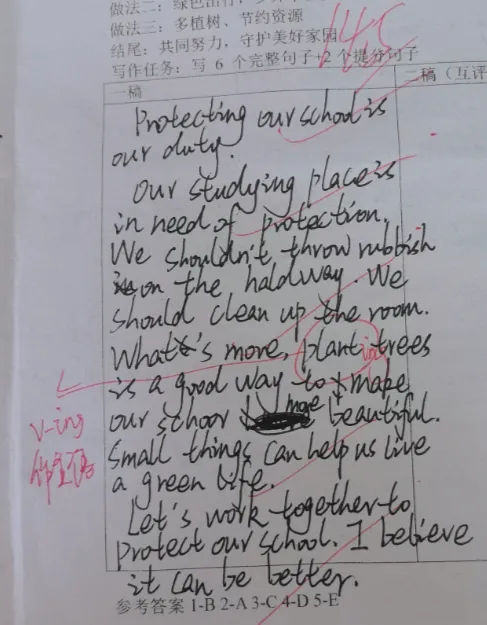 做法二：绿色出行，
做法三：多植树、节约资源
结尾：共同努力，守护美好家园
写作任务：写 6 个完整句子+2 个提分句子
14.5
一稿
二稿（互评
Protecting our school is
our duty.
Our studying place is
in need of protection.
We shouldn't throw rubbish
on the haldway. We
should clean up the room.
What's more, plant trees
ing
is a good way to make
our school more beautiful.
Small things can help us live
a green life.
Let's work together to
protect our school. I believe
it can be better.
V-ing
作主语
参考答案 1-B 2-A 3-C 4-D 5-E